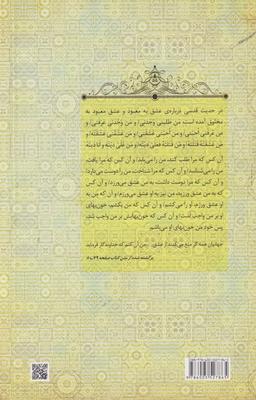 در حدیث قدسی درباره‌ی عشق به معبود و عشق معبود به
مخلوق آمده است: مَن طلبنی وَجَدنی/ و مَن وَجَدنی عَرفنی/ و
مَن عرفنی أحبّنی/ و مَن أحبنی عَشقنی/ و مَن عَشَقنی عَشقتُه/ و
مَن عَشقتُه قتلتُه/ و مَن قتلتُه فَعلیّ دیتُه/ و مَن عَلیّ دیتُه و أنا دیتُه
آن کس که مرا طلب کند، من را می‌یابد/ و آن کس که مرا یافت،
من را می‌شناسد/ و آن کس که مرا شناخت من را دوست می‌دارد/
و آن کس که مرا دوست داشت، به من عشق می‌ورزد/ و آن کس
که به من عشق ورزید، من نیز به او عشق می‌ورزم/ و آن که من به
او عشق ورزم، او را می‌کشم/ و آن کس که من بکشم، خون‌بهای
او بر من واجب است/ و آن کس که خون‌بهایش بر من واجب شد،
پس خود من خون‌بهای او می‌باشم.
جهانیان همه گر منع می‌کنند از عشق من آن کنم که خداوندگار فرماید
برگشته شده از متن کتاب صفحه